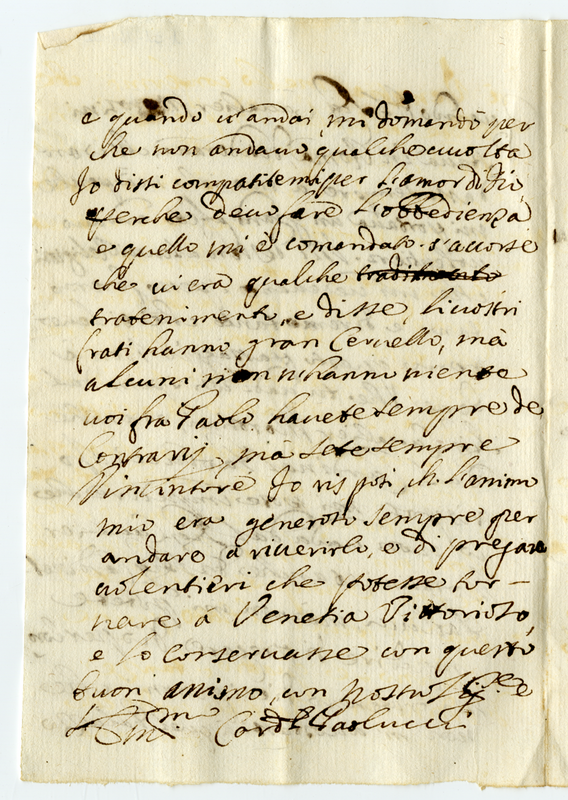 e quando v'andai mi domandò per
che non andavo qualche vvolta
Io dissi compatitemi per l'amor di Dio
perche devo fare l'obbedienza
e quello mi è comandato. s'accorse
che vi era qualche tradimento
tratenimento, e disse, li vostri
frati hanno gran Cervello, mà
alcuni non n'hanno niente
voi fra Paolo havete sempre de
Contrarij, mà sete sempre
Vincitore Io risposi, ch l'animo
mio era generoso sempre per
andare a riverirlo, e di pregare
volentieri che potesse tor-
nare à Venetia Vittorioso,
e lo conservasse con questo
buon animo, con nostro Sig.re e
l'Em.mo Card.l Paolucci